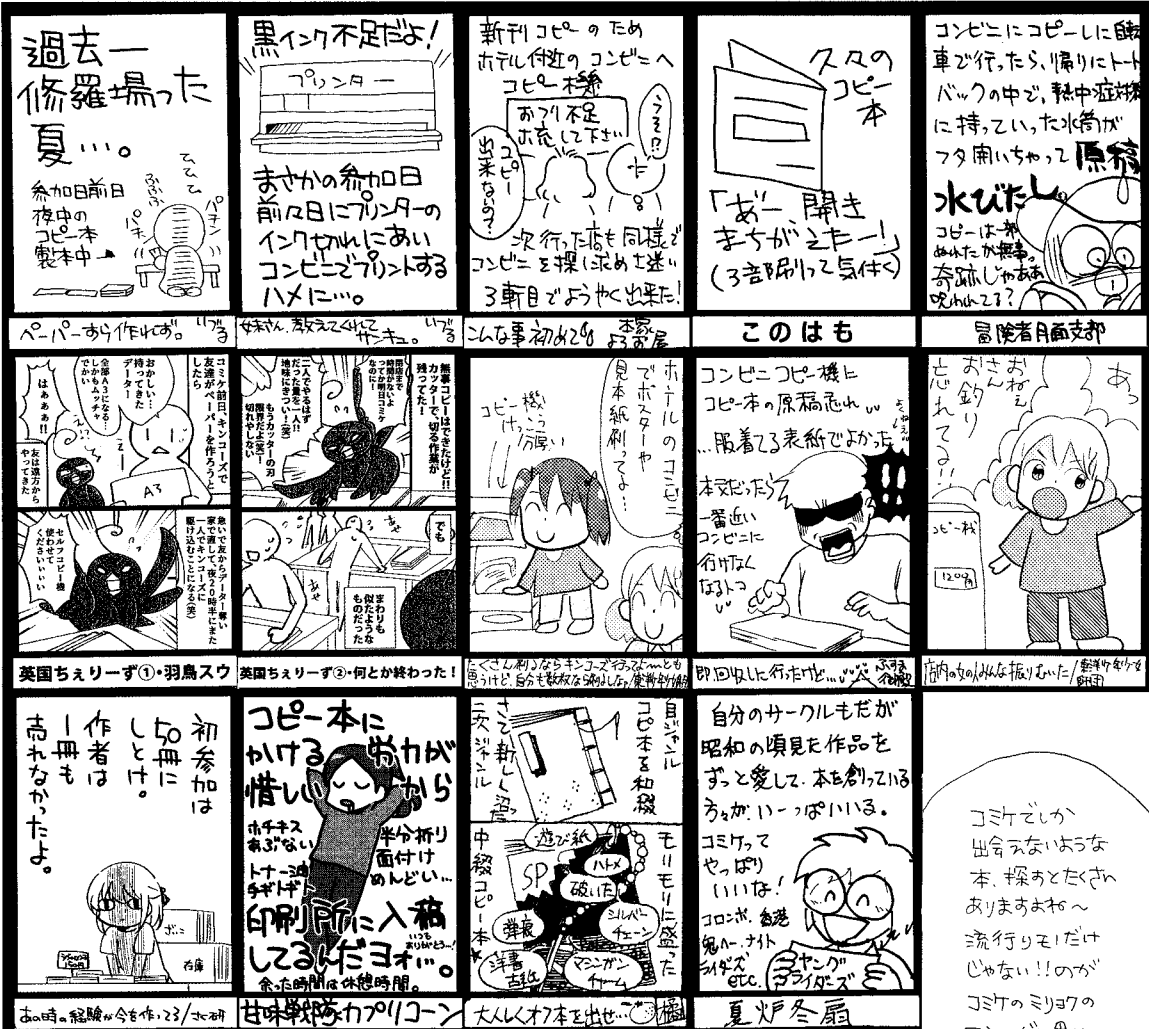 過去一
修羅場った
夏…。
てむてむ
ふふふふ
パチン
パチ
参加日前日
夜中の
コピー本
製本中
ペーパーすら作れず。
いづる
黒インク不足だよ!
プリンター
まさかの参加日
前々日にプリンターの
インク切れにあい
コンビニでプリントする
ハメに…。
教えてくれて
サンキュ。
いづる
新刊コピーのため
ホテル付近のコンビニへ
コピー機
おつり不足
補充して下さい
うそ!?
コピー
出来ないの?
次行った店も同様で
コンビニを探し求めさ迷い
3軒目でようやく出来た!
こんな事初めて
本家
よろお屋
久々の
コピー
本
「あー、開き
まちがえたー!」
(3部刷って気付く)
このはも
コンビニにコピーしに自転
車で行ったら、帰りにトート
バックの中で、熱中症対策
に持っていった水筒が
フタ開いちゃって原稿
水びたし。
コピーは一部
ぬれたが無事。
奇跡じゃああ
呪われてる?
冒険者月面支部
コミケ前日、キンコーズで
友達がペーパーを作ろうと
したら
おかしい…
持ってきた
データー
全部A3になる…
しかもムッチャ
でかい
えっ…
はぁぁぁ!!
A3
友は遠方から
やってきた
急いで友からデーター奪い
家で直して、夜20時半にまた
一人でキンコーズに
駆け込むことになる(笑)
セルフコピー機
使わせて
くださいぃぃぃ
英国ちぇりーず①・羽鳥スウ
無事コピーはできたけど!!
カッターで、切る作業が
残ってた!
閉店まで
時間がないよ
ってか明日コミケ
なのに!
二人でやるはず
だった量を一人!!
地味にきつい!(笑)
もうカッターの刃
限界だよ(笑)!
切れやしない
でも
あせ
あせ
まわりも
似たような
ものだった
英国ちぇりーず②・何とか終わった!
ホテルのコンビニ
でポスターや
見本紙刷ってよ…
コピー機
けっこう
分厚い
たくさん刷るならキンコーズ行ってよ…とも
思うけど、自分も数枚なら刷るしなぁ
コンビニコピー機に
コピー本の原稿忘れ
…服着てる表紙でよかった
よくねぇ
!!
本文だったら
一番近い
コンビニに
行けなく
なるトコ
即回収しに行ったけど…
あっ
おねぇ
さん
お釣り
忘れてる!!
コピー機
1200円
店内の女の人みんな振りむいた
初参加は
50冊に
しとけ。
作者は
1冊も
売れなかったよ。
在庫
あの時の経験が今を作ってる/さく研
コピー本に
かける労力が
惜しいから
ホチキス
あぶない
半分折り
面付け
めんどい…
トナー油
手ギトギト
印刷所に入稿
いつも
ありがとう…!
してるんだヨォ…。
余った時間は休憩時間。
甘味戦隊カプリコーン
自ジャンル
コピー本を和綴
さて新しく沼った
二次ジャンル
モリモリに盛った
中綴コピー本★
遊び紙
SP
ハトメ
破いた
弾痕
シルバー
チェーン
洋書
古紙
マシンガン
チャーム
大人しくオフ本を出せ…
橘
自分のサークルもだが
昭和の頃見た作品を
ずっと愛して、本を創っている
方々が、いーっぱいいる。
コミケって
やっぱり
いいな!
コロンボ、香港
鬼へー、ナイト
ライダーズ
etc.
ヤング
ライダーズ
夏炉冬扇
コミケでしか
出会えないような
本、探すとたくさん
ありますよね〜
流行りモノだけ
じゃない!!のが
コミケのミリョクの